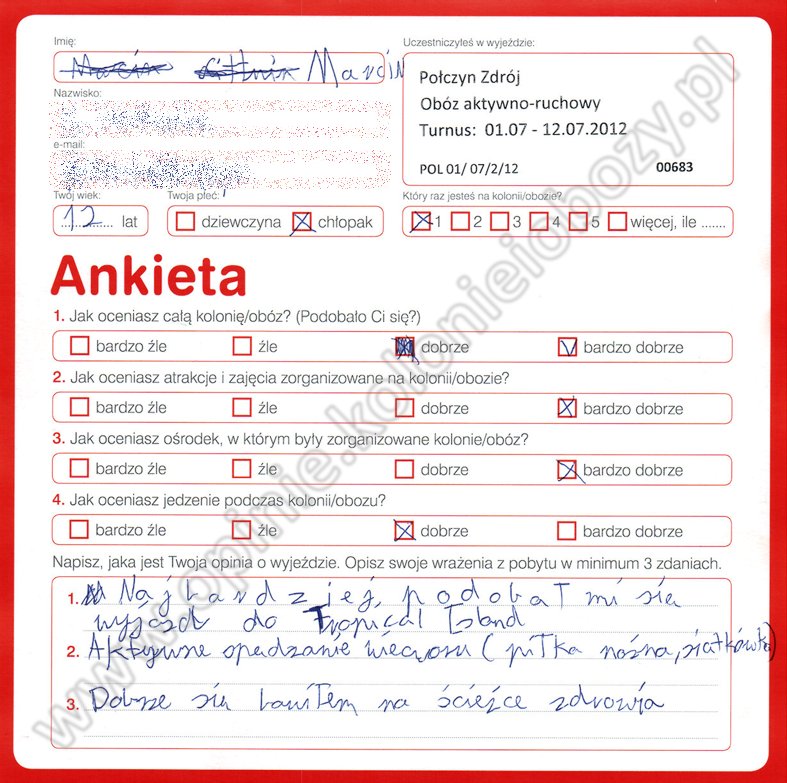 Imię:
Marcin
Uczestniczyłeś w wyjeździe:
Połczyn Zdrój
Obóz aktywno-ruchowy
Turnus: 01.07 - 12.07.2012
POL 01/ 07/2/12 00683
Nazwisko:
e-mail:
Twój wiek:
12 lat
Twoja płeć:
dziewczyna chłopak
Który raz jesteś na kolonii/obozie?
1 2 3 4 5 więcej, ile .......
Ankieta
1. Jak oceniasz całą kolonię/obóz? (Podobało Ci się?)
bardzo źle źle dobrze bardzo dobrze
2. Jak oceniasz atrakcje i zajęcia zorganizowane na kolonii/obozie?
bardzo źle źle dobrze bardzo dobrze
3. Jak oceniasz ośrodek, w którym były zorganizowane kolonie/obóz?
bardzo źle źle dobrze bardzo dobrze
4. Jak oceniasz jedzenie podczas kolonii/obozu?
bardzo źle źle dobrze bardzo dobrze
Napisz, jaka jest Twoja opinia o wyjeździe. Opisz swoje wrażenia z pobytu w minimum 3 zdaniach.
1. Najbardziej, podobał mi sie
wyjazd do Tropical Island
2. Aktywne spedzanie wieczoru (piłka nożna, siatkówka)
3. Dobrze sie bawiłem na ścieżce zdrowia
www.opinie.kolonieiobozy.pl